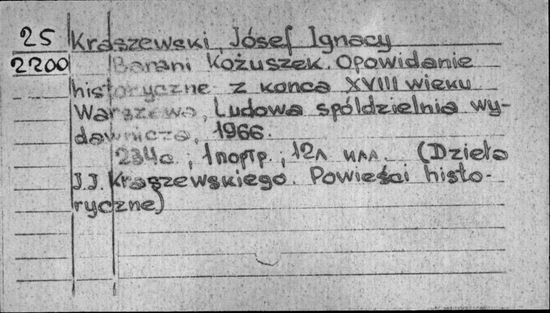 25 Kraszewski, Jósef Ignacy
2200 Barani Kożuszek. Opowidanie
historyczne z konca XVIII wieku
Warszewa, Ludowa spóldzielnia wy-
dawnicza, 1966.
234c., 1 портр., 12л илл. (Dzieła
J.J. Kraszewskiego. Powieści histo-
ryczne)